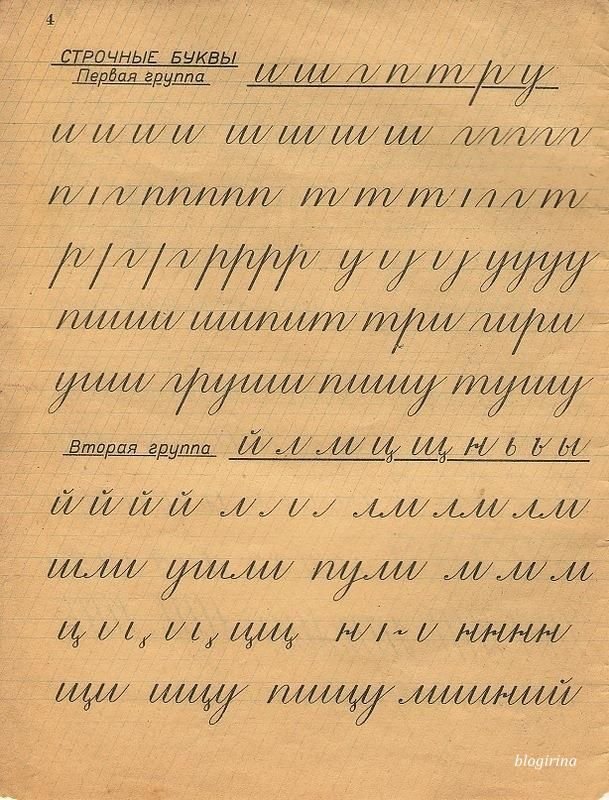 4
СТРОЧНЫЕ БУКВЫ
Первая группа и ш г п т р у
и и и и ш ш ш ш ш г г г г г
п г п п п п п т т т г г т
р г г р р р р у у у у у
пиши шипит три гири
уши груши пишу тушу
Вторая группа й л м ц щ н ь ъ ы
й й й й л лм лм лм
шли ушли пули м м м
ц ц щ н н н н н
щи ищу пищу лишний
blogirina